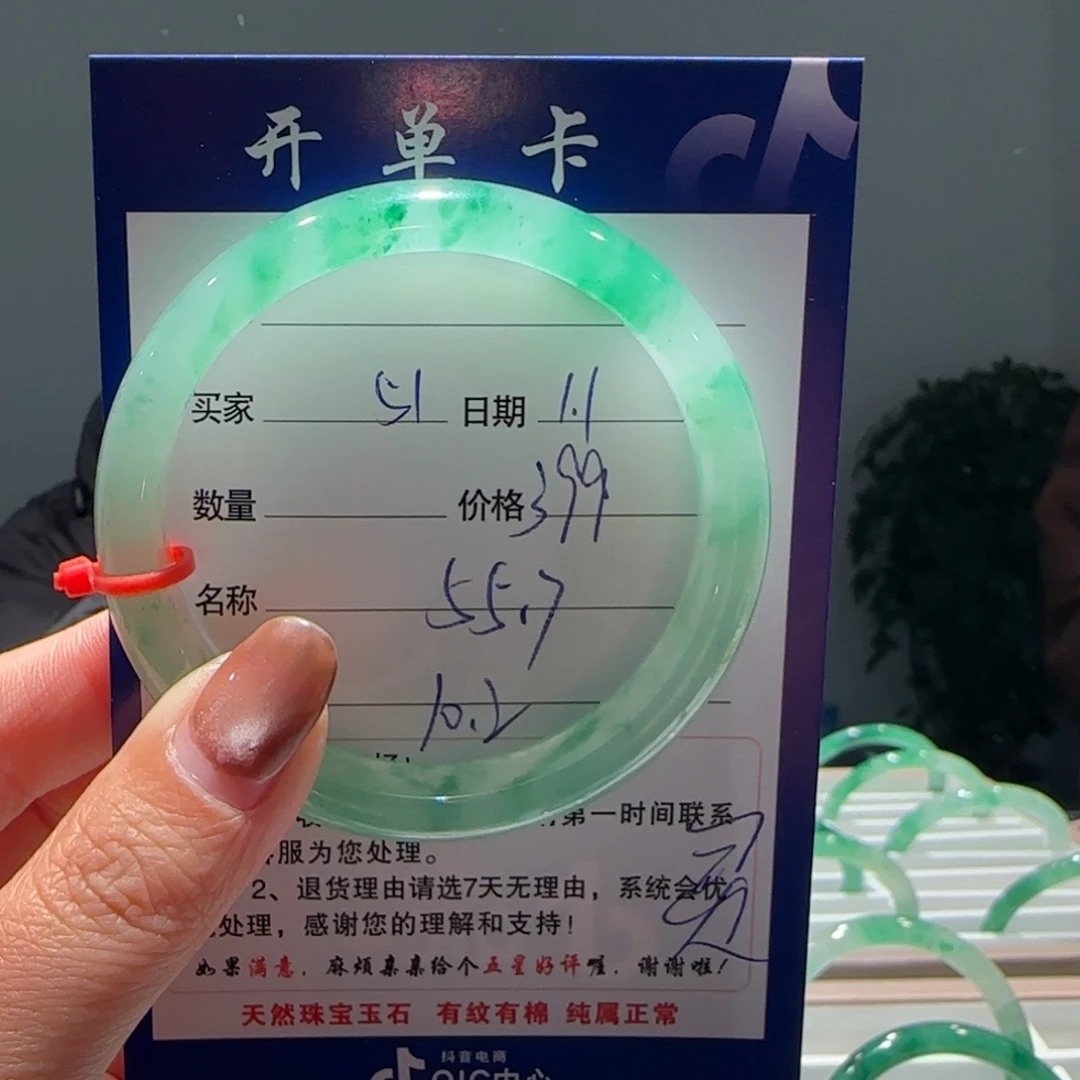 开单卡
买家 51 日期 1.1
数量 价格 399
名称 55.7
10.2
第一时间联系
服为您处理。
2、退货理由请选7天无理由，系统会优
处理，感谢您的理解和支持！
如果满意，麻烦亲亲给个五星好评喔，谢谢啦！
天然珠宝玉石 有纹有棉 纯属正常
抖音电商
QIC中心